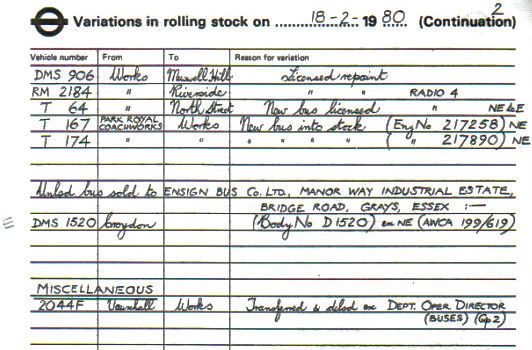 2
Variations in rolling stock on 18-2- 1980 (Continuation)
Vehicle number From To Reason for variation
DMS 906 Works Muswell Hill Licensed repaint
RM 2184 " Riverside " " RADIO 4
T 64 " North Street New bus licensed " NE LE
T 167 PARK ROYAL COACHWORKS Works New bus into stock (Eng No 217258) NE
T 174 " " " " " " ( " 217890) NE
Unlsd bus sold to ENSIGN BUS Co. LTD, MANOR WAY INDUSTRIAL ESTATE,
BRIDGE ROAD, GRAYS, ESSEX :—
DMS 1520 Croydon (Body No D1520) ex NE (AWCA 199/619)
MISCELLANEOUS
2044F Vauxhall Works Transferred & dlsd ex DEPT. OPER. DIRECTOR
(BUSES) (Gp 2)